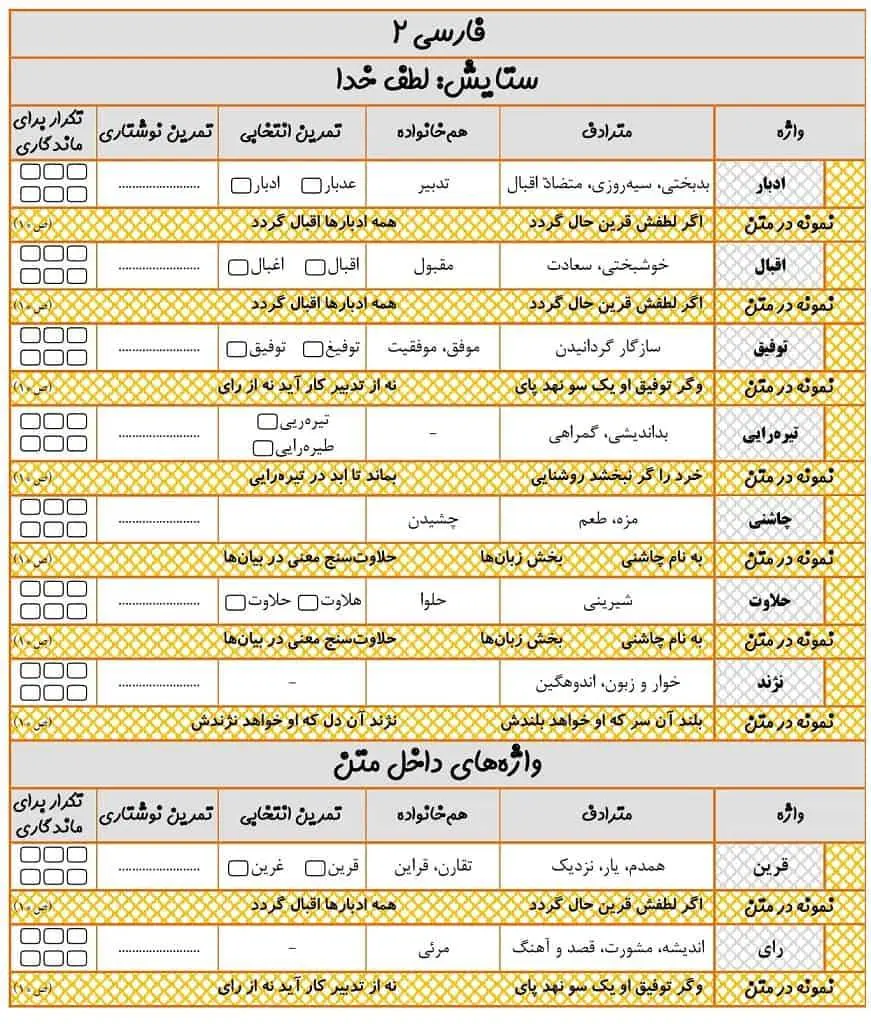 فارسی ۲
ستایش: لطف خدا
واژه مترادف هم‌خانواده تمرین انتخابی تمرین نوشتاری تکرار برای ماندگاری
ادبار بدبختی، سیه‌روزی، متضادّ اقبال تدبیر عدبار ادبار ........................
نمونه در متن اگر لطفش قرین حال گردد همه ادبارها اقبال گردد (ص ۱۰)
اقبال خوشبختی، سعادت مقبول اقبال اغبال ........................
نمونه در متن اگر لطفش قرین حال گردد همه ادبارها اقبال گردد (ص ۱۰)
توفیق سازگار گردانیدن موفق، موفقیت توفیغ توفیق ........................
نمونه در متن وگر توفیق او یک سو نهد پای نه از تدبیر کار آید نه از رای (ص ۱۰)
تیره‌رایی بداندیشی، گمراهی - تیره‌ریی ........................
طیره‌رایی
نمونه در متن خرد را گر نبخشد روشنایی بماند تا ابد در تیره‌رایی (ص ۱۰)
چاشنی مزه، طعم چشیدن ........................
نمونه در متن به نام چاشنی بخش زبان‌ها حلاوت‌سنج معنی در بیان‌ها (ص ۱۰)
حلاوت شیرینی حلوا هلاوت حلاوت ........................
نمونه در متن به نام چاشنی بخش زبان‌ها حلاوت‌سنج معنی در بیان‌ها (ص ۱۰)
نژند خوار و زبون، اندوهگین - ........................
نمونه در متن بلند آن سر که او خواهد بلندش نژند آن دل که او خواهد نژندش (ص ۱۰)
واژه‌های داخل متن
واژه مترادف هم‌خانواده تمرین انتخابی تمرین نوشتاری تکرار برای ماندگاری
قرین همدم، یار، نزدیک تقارن، قراین قرین غرین ........................
نمونه در متن اگر لطفش قرین حال گردد همه ادبارها اقبال گردد (ص ۱۰)
رای اندیشه، مشورت، قصد و آهنگ مرئی - ........................
نمونه در متن وگر توفیق او یک سو نهد پای نه از تدبیر کار آید نه از رای (ص ۱۰)